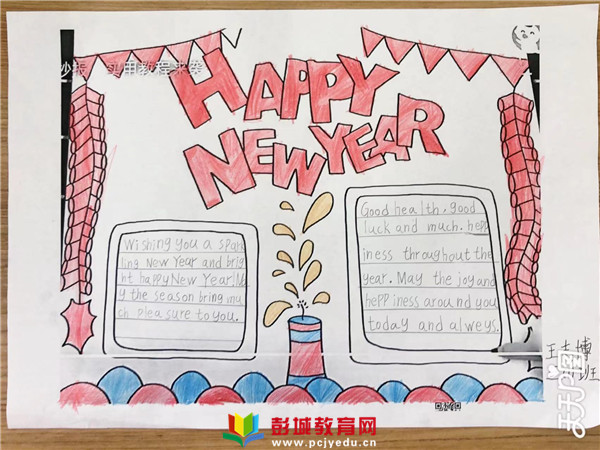 实用教程来袭
HAPPY
NEW YEAR
Wishing you a spark
ling New Year and brig
ht happy New Year! Ma
y the season bring mu
ch pleasure to you.
Good health, good
luck and much. hepp
iness throughout the
year. May the joy and
heppiness around you
today and alweys.
王
班
彭城教育网
www.pcjyedu.cn